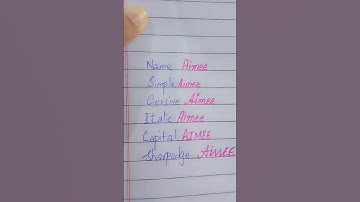 Name Aimee
Simple Aimee
Cursive Aimee
Italic Aimee
Capital AIMEE
Sharpedge AIMEE